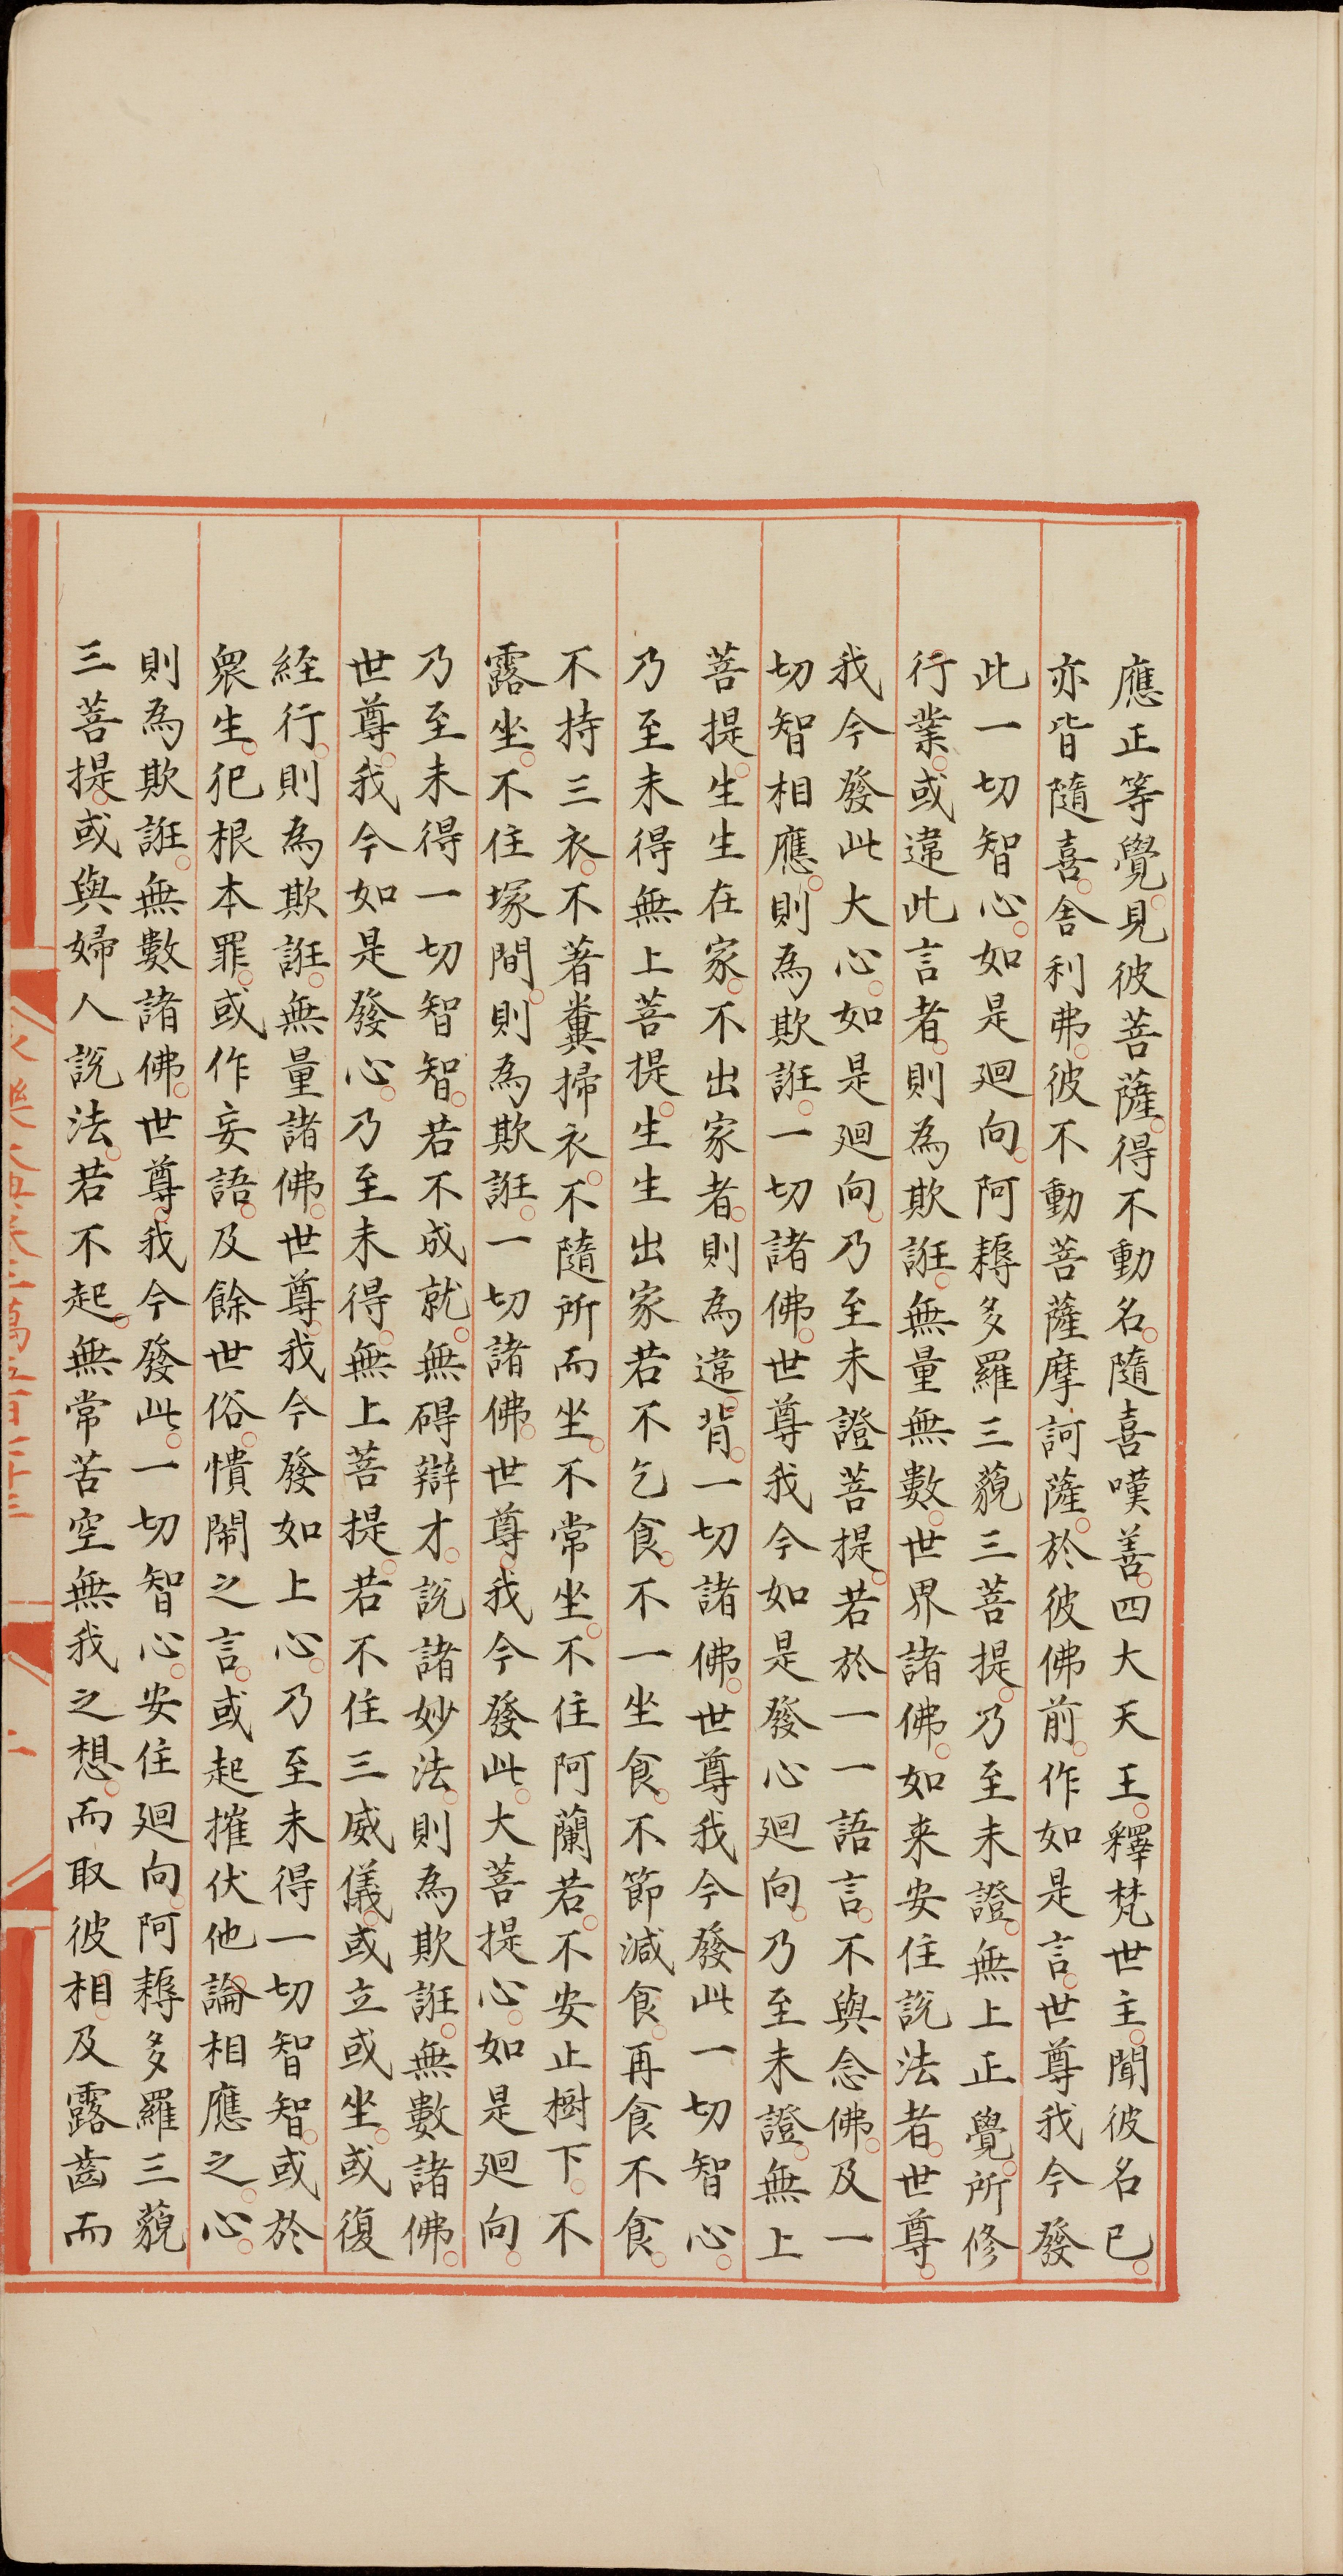 應正等覺。見彼菩薩。得不動名。隨喜嘆善。四大天王。釋梵世主。聞彼名已。
亦皆隨喜。舍利弗。彼不動菩薩摩訶薩。於彼佛前。作如是言。世尊我今發
此一切智心。如是廻向。阿耨多羅三藐三菩提。乃至未證。無上正覺。所修
行業。或違此言者。則為欺誑。無量無數。世界諸佛。如来安住說法者。世尊。
我今發此大心。如是廻向。乃至未證菩提。若於一一語言。不與念佛。及一
切智相應。則為欺誑。一切諸佛。世尊我今如是發心廻向。乃至未證。無上
菩提。生生在家。不出家者。則為違背。一切諸佛。世尊我今發此一切智心。
乃至未得無上菩提。生生出家若不乞食。不一坐食。不節減食。再食不食。
不持三衣。不著糞掃衣。不隨所而坐。不常坐。不住阿蘭若。不安止樹下。不
露坐。不住塚間。則為欺誑。一切諸佛。世尊。我今發此。大菩提心。如是廻向。
乃至未得一切智智。若不成就。無碍辯才。說諸妙法。則為欺誑。無數諸佛。
世尊。我今如是發心。乃至未得。無上菩提。若不住三威儀。或立或坐。或復
經行。則為欺誑。無量諸佛。世尊。我今發如上心。乃至未得一切智智。或於
衆生。犯根本罪。或作妄語。及餘世俗。憒鬧之言。或起摧伏他論相應之心。
則為欺誑。無數諸佛。世尊。我今發此。一切智心。安住廻向。阿耨多羅三藐
三菩提。或與婦人說法。若不起。無常苦空無我之想。而取彼相。及露齒而